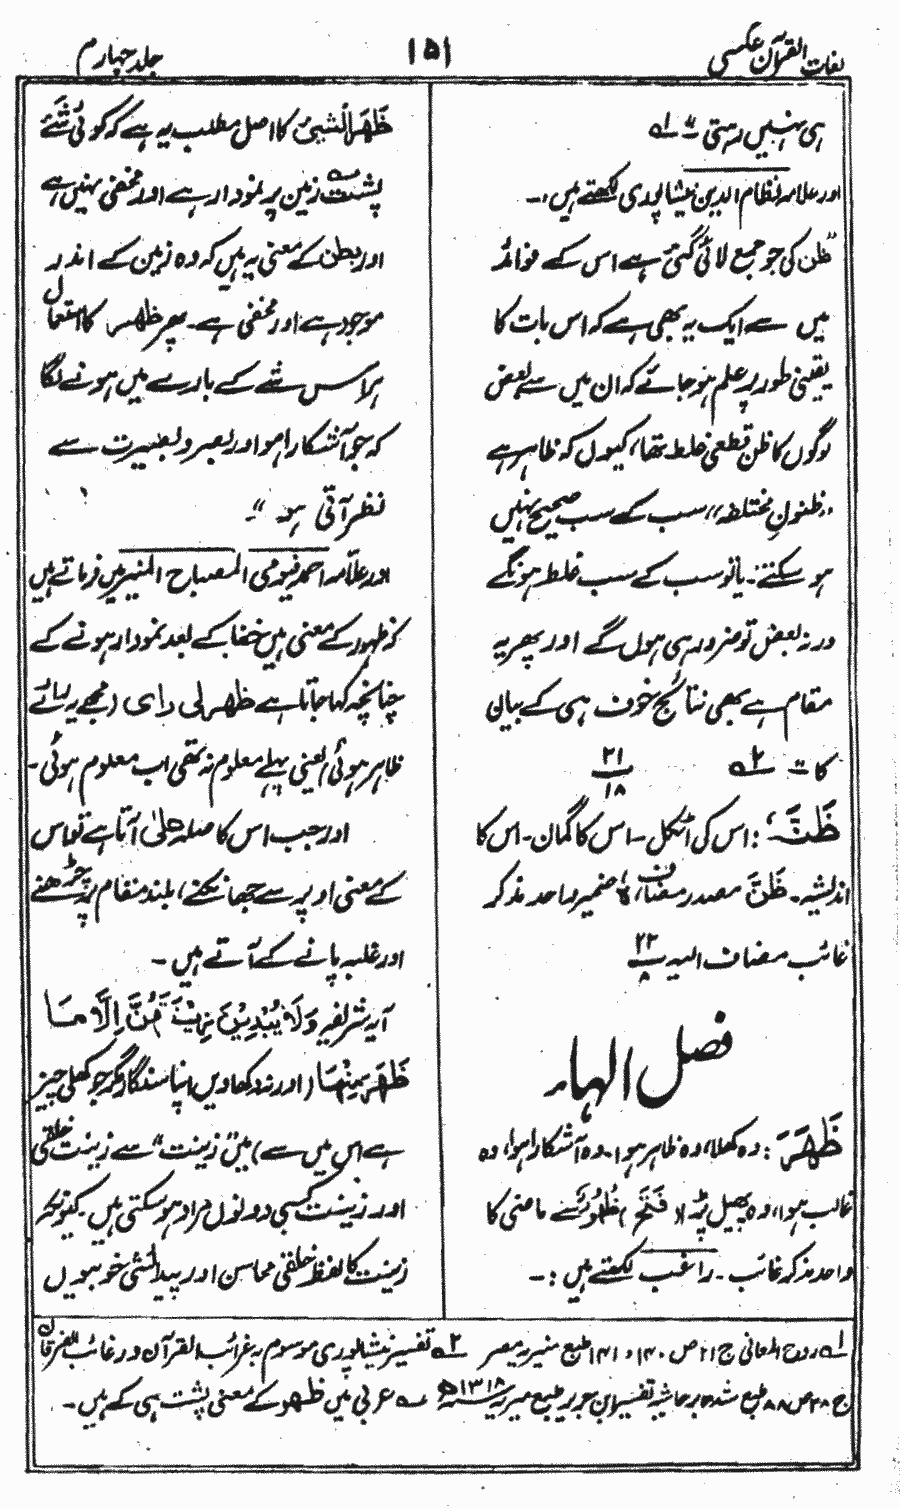 لغات القرآن عکسی
۱۵۱
جلد چہارم
ہی نہیں رہتی ۔ لہ
اور علامہ نظام الدین نیشاپوری لکھتے ہیں :۔
"ظن کی جو جمع لائی گئی ہے اس کے فوائد
میں سے ایک یہ بھی ہے کہ اس بات کا
یقینی طور پر علم ہو جائے کہ ان میں سے بعض
لوگوں کا ظن قطعی غلط تھا، کیوں کہ ظاہر ہے
"ظنونِ مختلفہ" سب کے سب صحیح نہیں
ہو سکتے۔ یا تو سب کے سب غلط ہونگے
ورنہ بعض تو ضرور ہی ہوں گے اور پھر یہ
مقام ہے بھی نتائج خوف ہی کے بیان
کا" ۲ہ ۲۱/۱۸
ظَنَّہٗ : اس کی اٹکل ۔ اس کا گمان ۔ اس کا
اندیشہ ۔ ظَنَّ مصدر مضاف، ہٗ ضمیر واحد مذکر
غائب مضاف الیہ ۲۲/۸
فصل الہاء
ظَهَرَ : وہ کھلا، وہ ظاہر ہوا ۔ وہ آشکارا ہوا، وہ
غالب ہوا، وہ پھیل پڑا (فَتَحَ) ظُهُوْرٌ سے ماضی کا
واحد مذکر غائب ۔ راغب لکھتے ہیں :۔
ظَهَرَ الشَّیْءُ کا اصل مطلب یہ ہے کہ کوئی شَے
پشت زمین پر نمودار ہے اور مخفی نہیں ہے
اور بطن کے معنی یہ ہیں کہ وہ زمین کے اندر
موجود ہے اور مخفی ہے ۔ پھر ظہر کا استعمال
ہر اس شئے کے بارے میں ہونے لگا
کہ جو آشکارا ہو اور بصر و بصیرت سے
نظر آتی ہو" ۔
اور علّامہ احمد فیومی المصباح المنیر میں فرماتے ہیں
کہ ظہور کے معنی ہیں خفا کے بعد نمودار ہونے کے
چنانچہ کہا جاتا ہے ظہر لی رای (مجھے یہ رائے
ظاہر ہوئی) یعنی پہلے معلوم نہ تھی اب معلوم ہوئی ۔
اور جب اس کا صلہ علیٰ آتا ہے تو اس
کے معنی اوپر سے جھانکنے، بلند مقام پر چڑھنے
اور غلبہ پانے کے آتے ہیں ۔
آیہ شریفہ وَلَا یُبْدِیْنَ زِیْنَتَهُنَّ اِلَّا مَا
ظَهَرَ مِنْهَا (اور نہ دکھاویں اپنا سنگار مگر جو کھلی چیز
ہے اس میں سے) میں "زینت" سے زینت خلقی
اور زینت کسبی دونوں مراد ہو سکتی ہیں ۔ کیونکہ
زینت کا لفظ خلقی محاسن اور پیدائشی خوبیوں
۱ہ روح المعانی ج ۲۱ ص ۱۴۰ و ۱۴۱ طبع منیریہ مصر ۲ہ تفسیر نیشاپوری موسوم بہ غرائب القرآن ورغائب الفرقان
ج ۲۸ ص ۸۸ طبع شدہ بر حاشیہ تفسیر ابن جریر طبع میریہ سنہ ۱۳۱۸ھ سہ عربی میں ظہر کے معنی پشت ہی کے ہیں ۔